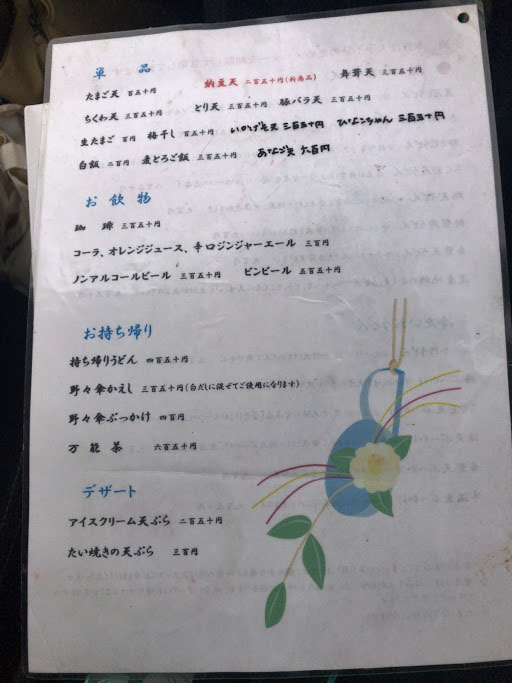 単品
たまご天 百五十円 納豆天 二百五十円(新商品) 舞茸天 三百五十円
ちくわ天 三百五十円 とり天 三百五十円 豚バラ天 三百五十円
生たまご 百円 梅干し 百五十円 いかげそ天 三百五十円 ひよこちゃん 三百五十円
白飯 二百円 麦とろご飯 三百五十円 あなご天 六百円
お飲物
珈琲 三百五十円
コーラ、オレンジジュース、辛口ジンジャーエール 三百円
ノンアルコールビール 三百五十円 ビンビール 五百五十円
お持ち帰り
持ち帰りうどん 四百五十円
野々傘かえし 三百五十円(白だしに混ぜてご使用になります)
野々傘ぶっかけ 四百円
万能茶 六百五十円
デザート
アイスクリーム天ぷら 二百五十円
たい焼きの天ぷら 三百円